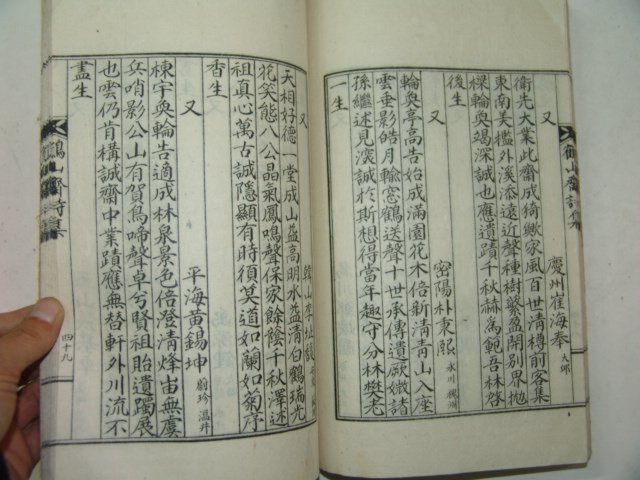 鶴山齋詩集
又 慶州崔海奉 大邱
衛先大業此齋成猗歟家風百世清樽前客集
東南美檻外溪添遠近聲種樹繁盈開別界拋
樑輪奐竭深誠也應遺蹟千秋赫為範吾林啓
後生
又 密陽朴秉熙 永川
輪奐亭高告始成滿園花木倍新清青山入座
雲垂影皓月輪窓鶴送聲十世承傳遺厥嫩諸
孫繼述見濃誠於斯想得當年趣守分林樊老
一生
又 韓山李址
天相好德一堂成山益高明水益清白鶴瑞光
花笑態八公晶氣鳳鳴聲保家餘蔭千秋澤述
祖真心萬古誠隱顯有時須笑道如蘭如菊序
香生
又 平海黃錫坤 蔚珍 溫井
棟宇奐輪告適成林泉景色倍澄清烽宙無虞
兵哨影公山有賀鳥啼聲卓兮賢祖貽遺躅展
也雲仍肯構誠齋中業蹟應無替軒外川流不
盡生
鶴山齋詩集
四十九